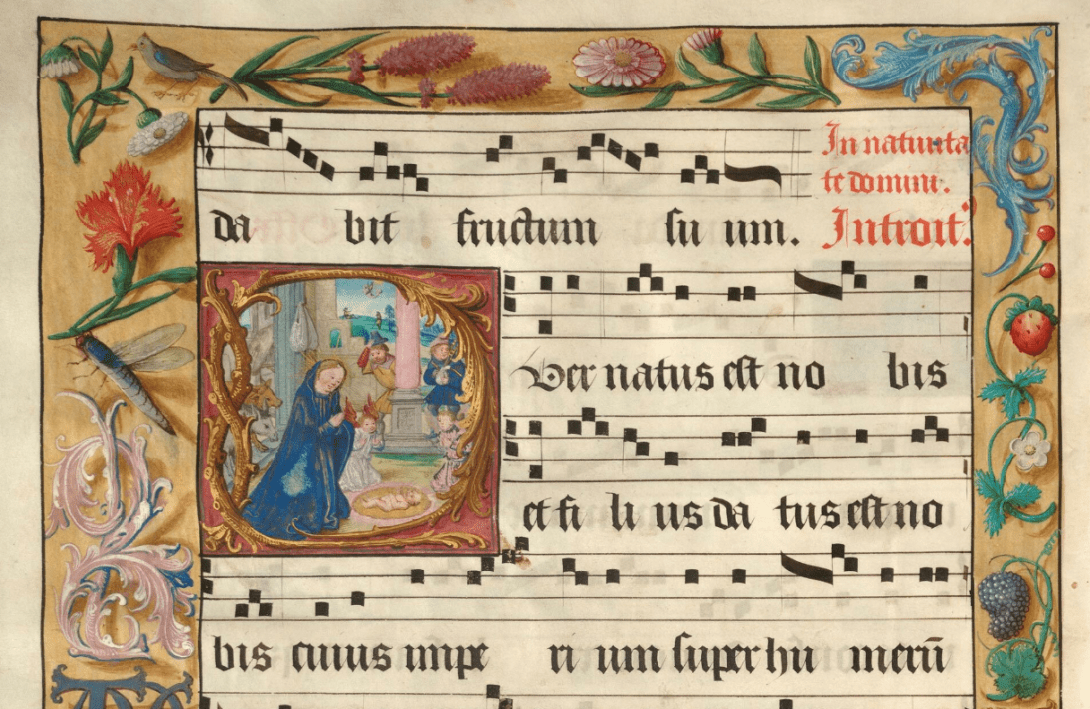 In natiuita
te domini.
da bit fructum su um. Introit⁹
PUer natus est no bis
et fi li us da tus est no
bis cuius impe ri um super hu merū